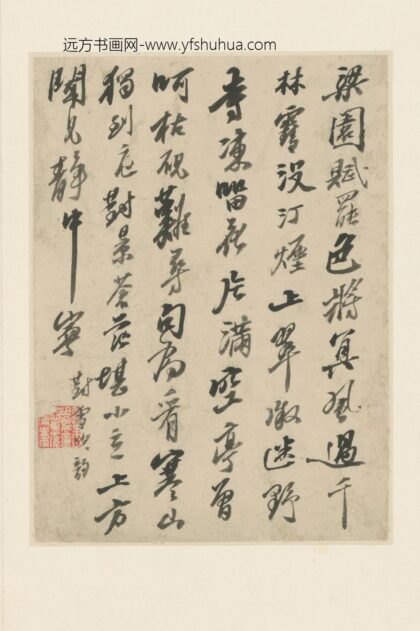 远方书画网-www.yfshuhua.com
梁園賦罷色將冥風過千
林雪沒汀煙上翠微迷野
寺凍留花片滿空亭曾
呵枯硯難尋句為看寒山
獨到庭對景蒼茫堪小立上方
靜中
對雪次韻